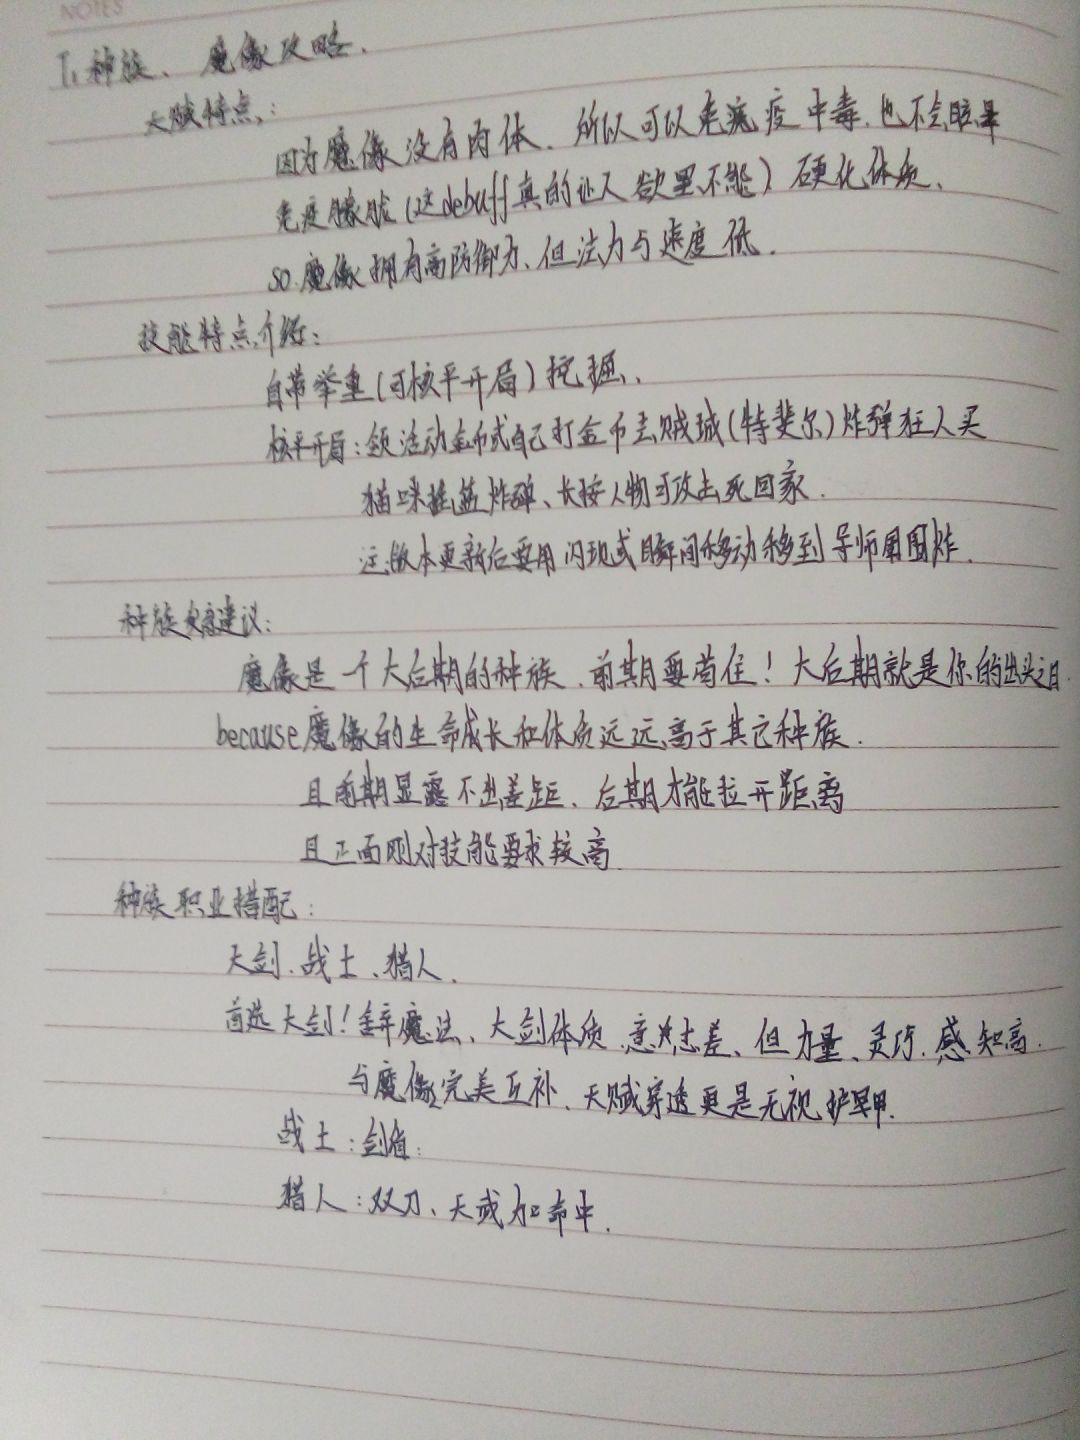 NOTES
T1种族、魔像攻略.
天赋特点:
因为魔像没有肉体.所以可以免疫疫中毒.也不会眩晕
免疫朦胧(这debuff真的让人欲罢不能)硬化体质、
so.魔像拥有高防御力、但法力与速度低.
技能特点介绍:
自带举重(可核平开局)挖掘、
核平开局:领活动金币或自己打金币去贼城(特斐尔)炸弹狂人买
猫咪摇篮炸弹、长按人物可攻击死回家.
注.版本更新后要用闪现或瞬间移动移到导师周围炸.
种族建议:
魔像是一个大后期的种族.前期要苟住!大后期就是你的出头之日.
because魔像的生命成长和体质远远高于其它种族.
且前期显露不出差距、后期才能拉开距离
且正面刚对技能要求较高
种族职业搭配:
大剑.战士、猎人.
首选大剑!弃魔法、大剑体质.意志差、但力量、灵巧.感知高.
与魔像完美互补、天赋穿透更是无视护甲.
战士:剑盾.
猎人:双刀、天或加命中.